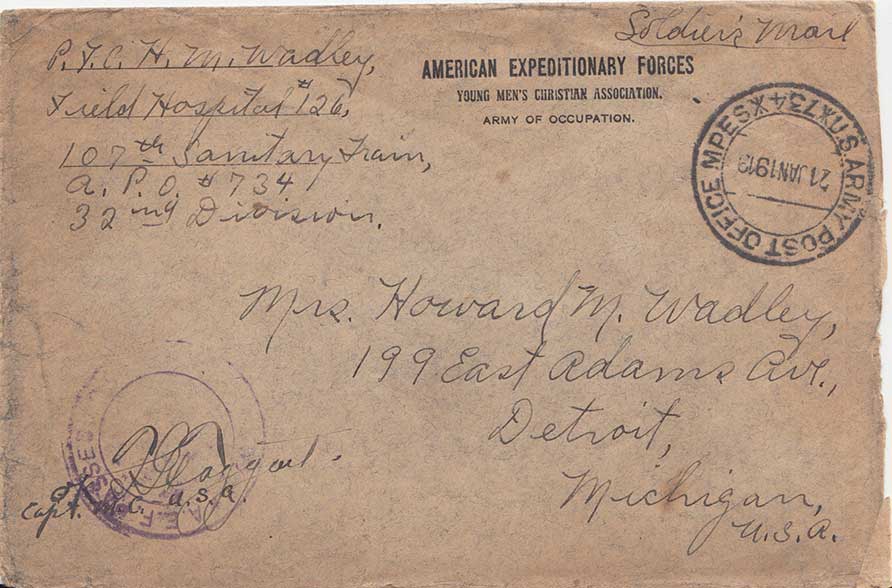 Soldier's Mail
P.F.C. H. M. Wadley,
Field Hospital #126,
107th Sanitary Train,
A. P. O. #734
32nd Division.
AMERICAN EXPEDITIONARY FORCES
YOUNG MEN'S CHRISTIAN ASSOCIATION.
ARMY OF OCCUPATION.
U.S. ARMY POST OFFICE MPES X 734 X
21 JAN 1919
Mrs. Howard M. Wadley,
199 East Adams Ave.,
Detroit,
Michigan,
U.S.A.
OK
Capt. M.C. U.S.A.
A.E.F. PASSED